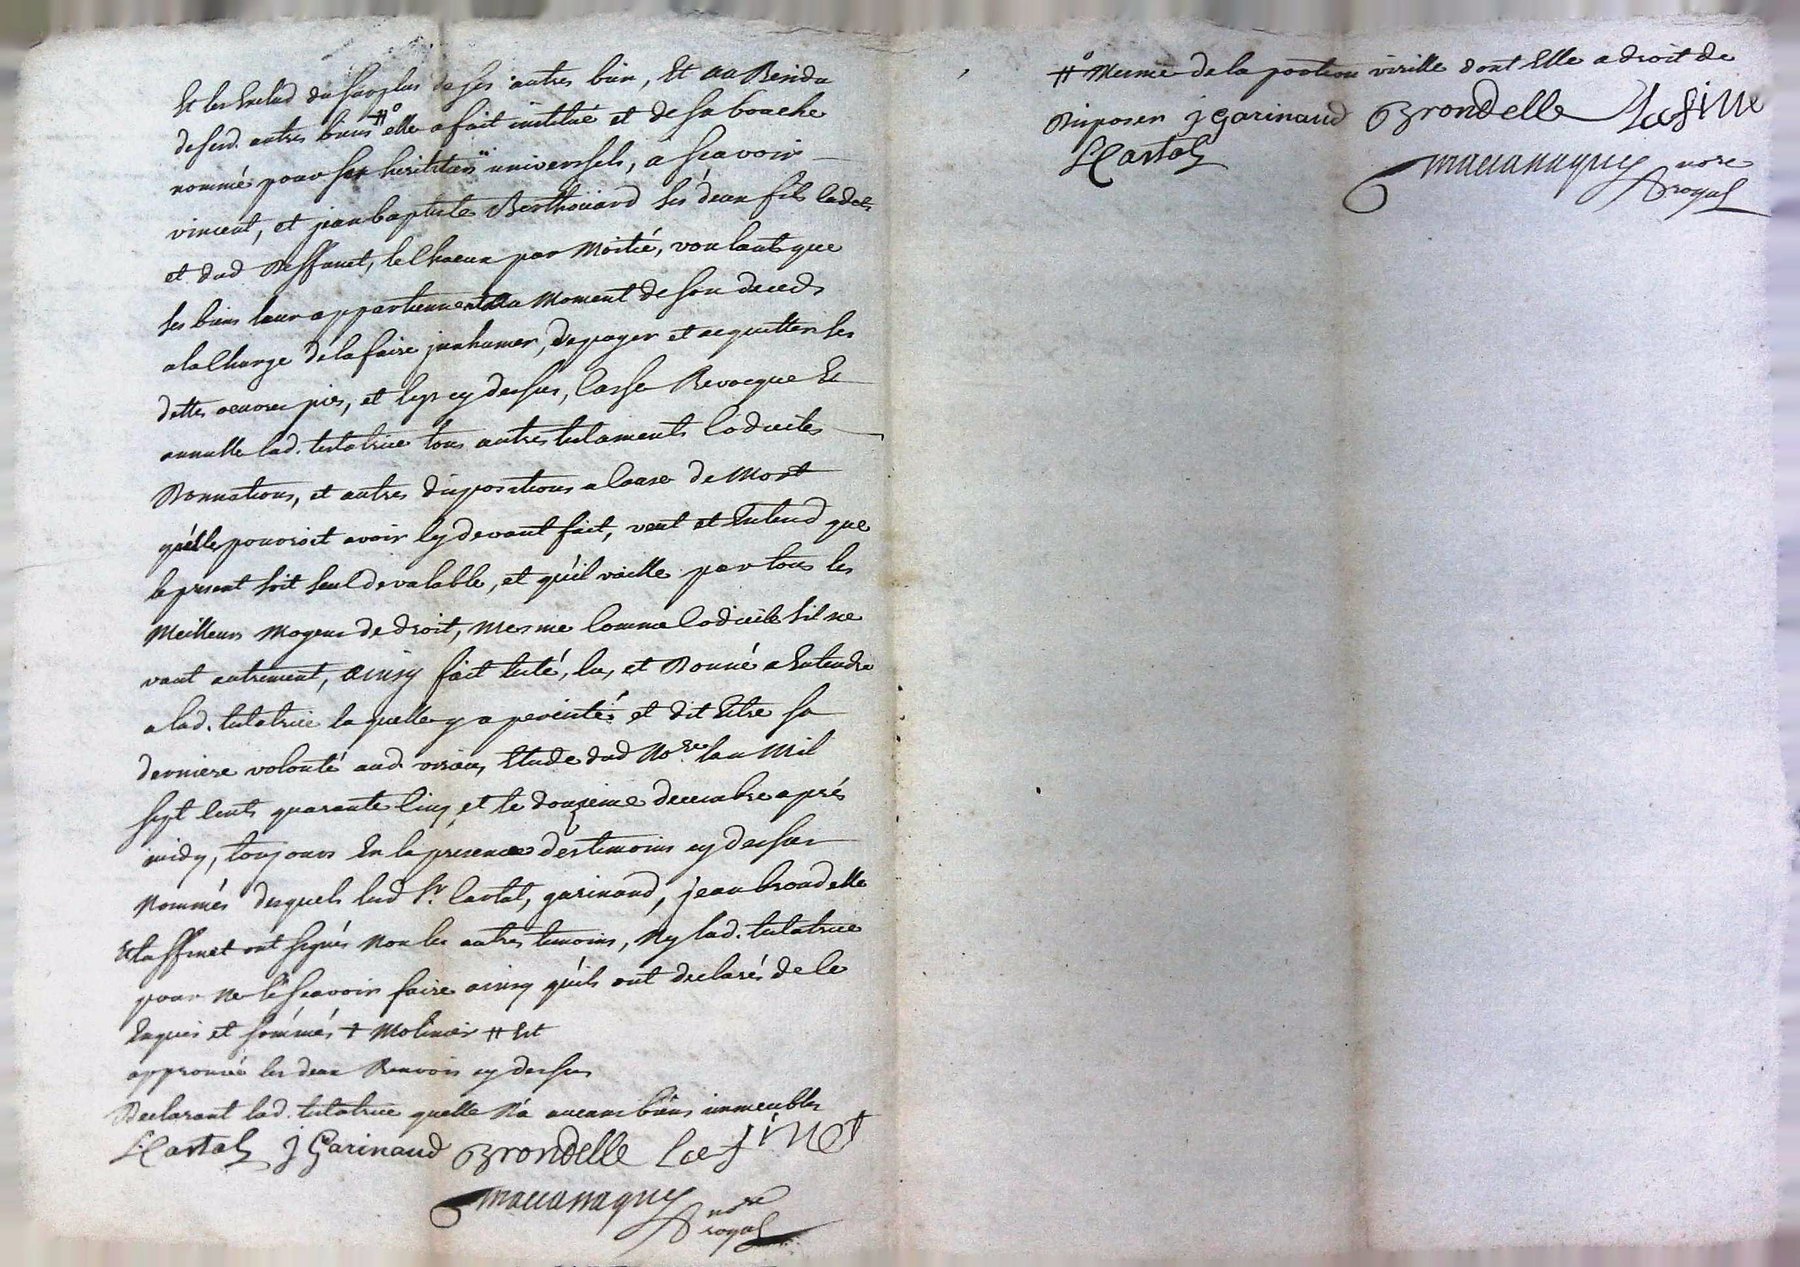 Et les Exclud du surplus de ses autres bien, Et au Residu
desesd. autres biens # elle a fait institué et de sa bouche
nommé pour ses heritiers universels, a scavoir
vincent, et jean baptiste Berthouard ses deux fils
et dud Deffunt, le Chacun par Moitié, voulant que
ses biens leur appartiennent au Moment de son deceds
a la Charge de la faire jnhumer, de payer et acquitter ses
dettes oeuvres pies, et legs cy dessus, Casse Revocque Et
annulle lad. testatrice tous autres testaments Codiciles
Donnations, et autres dispositions a Cause de Mort
qu'elle pouvoit avoir Cy devant fait, veut et Entend que
le present soit seul de valable, et qu'il vaille par tous les
Meilleurs Moyens de droit, Mesme Comme Codicile s'il ne
vaut autrement, ainsy fait, lu, et Donné a Entendre
a lad. testatrice laquelle y a et dit Estre sa
derniere volonté aud. Etude dud No.re lan Mil
sept Cents quarante Cinq et le douzieme decembre aprés
midy, toujours En la presence des temoins cy dessus
Nommés desquels led Sr. Cartal, garinaud, jean brondelle
Et laffinet ont signés Non les autres temoins, Ny lad. testatrice
pour ne le scavoir faire ainsy qu'ils ont declarés de le
Enquis et sommés + Molinier # Est
approuvée les deux Renvois cy dessus
Declarant lad. testatrice quelle N'a aucuns biens immeubles
Cartal j Garinaud Brondelle Lafinet
nore
royal
# Mesme de la portion virille dont Elle a droit de
Disposer j Garinaud Brondelle Lafine
Cartal
nore
royal